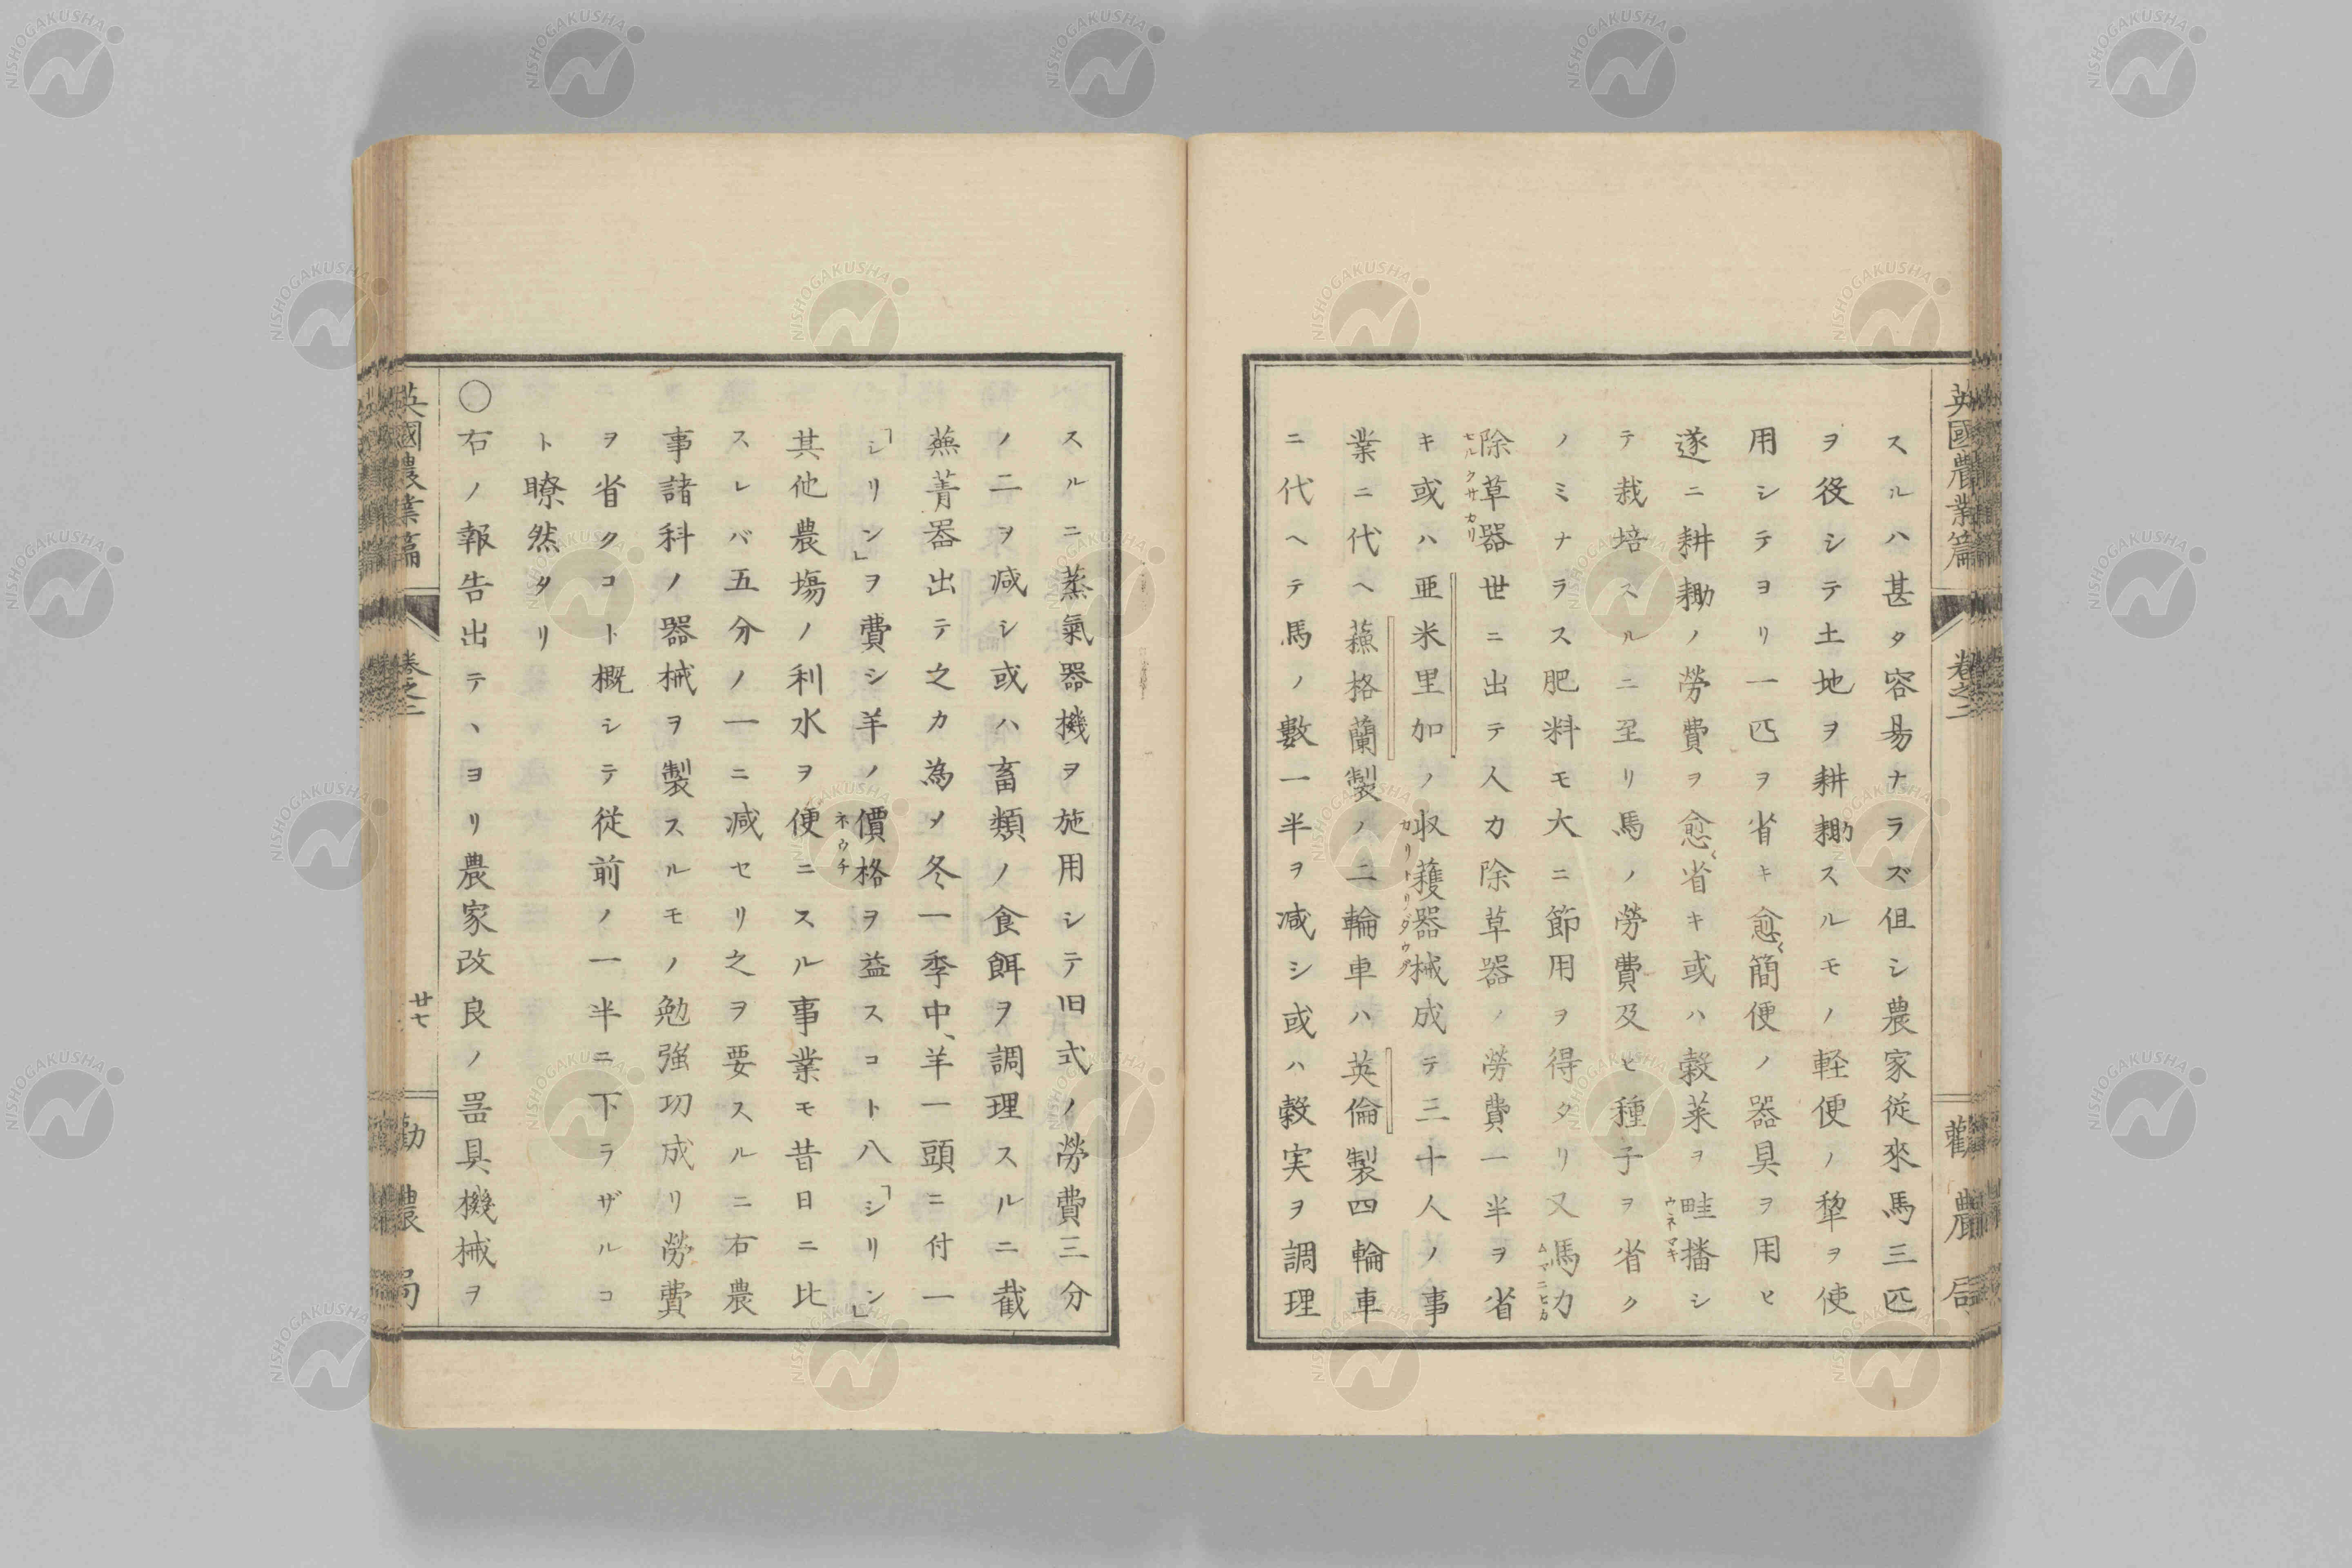 英國農業篇 卷之二 勸農局
スルハ甚タ容易ナラズ但シ農家従來馬三匹
ヲ役シテ土地ヲ耕耡スルモノ軽便ノ犂ヲ使
用シテヨリ一匹ヲ省キ愈〻簡便ノ器具ヲ用ヒ
遂ニ耕耡ノ勞費ヲ愈〻省キ或ハ穀菜ヲ畦播シ
ウネマキ
テ栽培スルニ至リ馬ノ勞費及ヒ種子ヲ省ク
ノミナラス肥料モ大ニ節用ヲ得タリ又馬力
除草器世ニ出テ人力除草器ノ勞費一半ヲ省
キ或ハ亜米里加ノ収穫器械成テ三十人ノ事
カリトリダウグ
業ニ代ヘ蘓格蘭製ノ二輪車ハ英倫製四輪車
ニ代ヘテ馬ノ數一半ヲ減シ或ハ穀実ヲ調理
スルニ蒸氣器機ヲ施用シテ旧式ノ勞費三分
ノ二ヲ減シ或ハ畜類ノ食餌ヲ調理スルニ截
蕪菁器出テ之カ為メ冬一季中、羊一頭ニ付一
「シリン」ヲ費シ羊ノ價格ヲ益スコト八「シリン」
ネウチ
其他農塲ノ利水ヲ便ニスル事業モ昔日ニ比
スレバ五分ノ一ニ減セリ之ヲ要スルニ右農
事諸科ノ器械ヲ製スルモノ勉強功成リ勞費
ヲ省クコト概シテ従前ノ一半ニ下ラザルコ
ト瞭然タリ
〇右ノ報告出テヽヨリ農家改良ノ噐具機械ヲ
英國農業篇 卷之二 廿七 勸農局
NISHOGAKUSHA